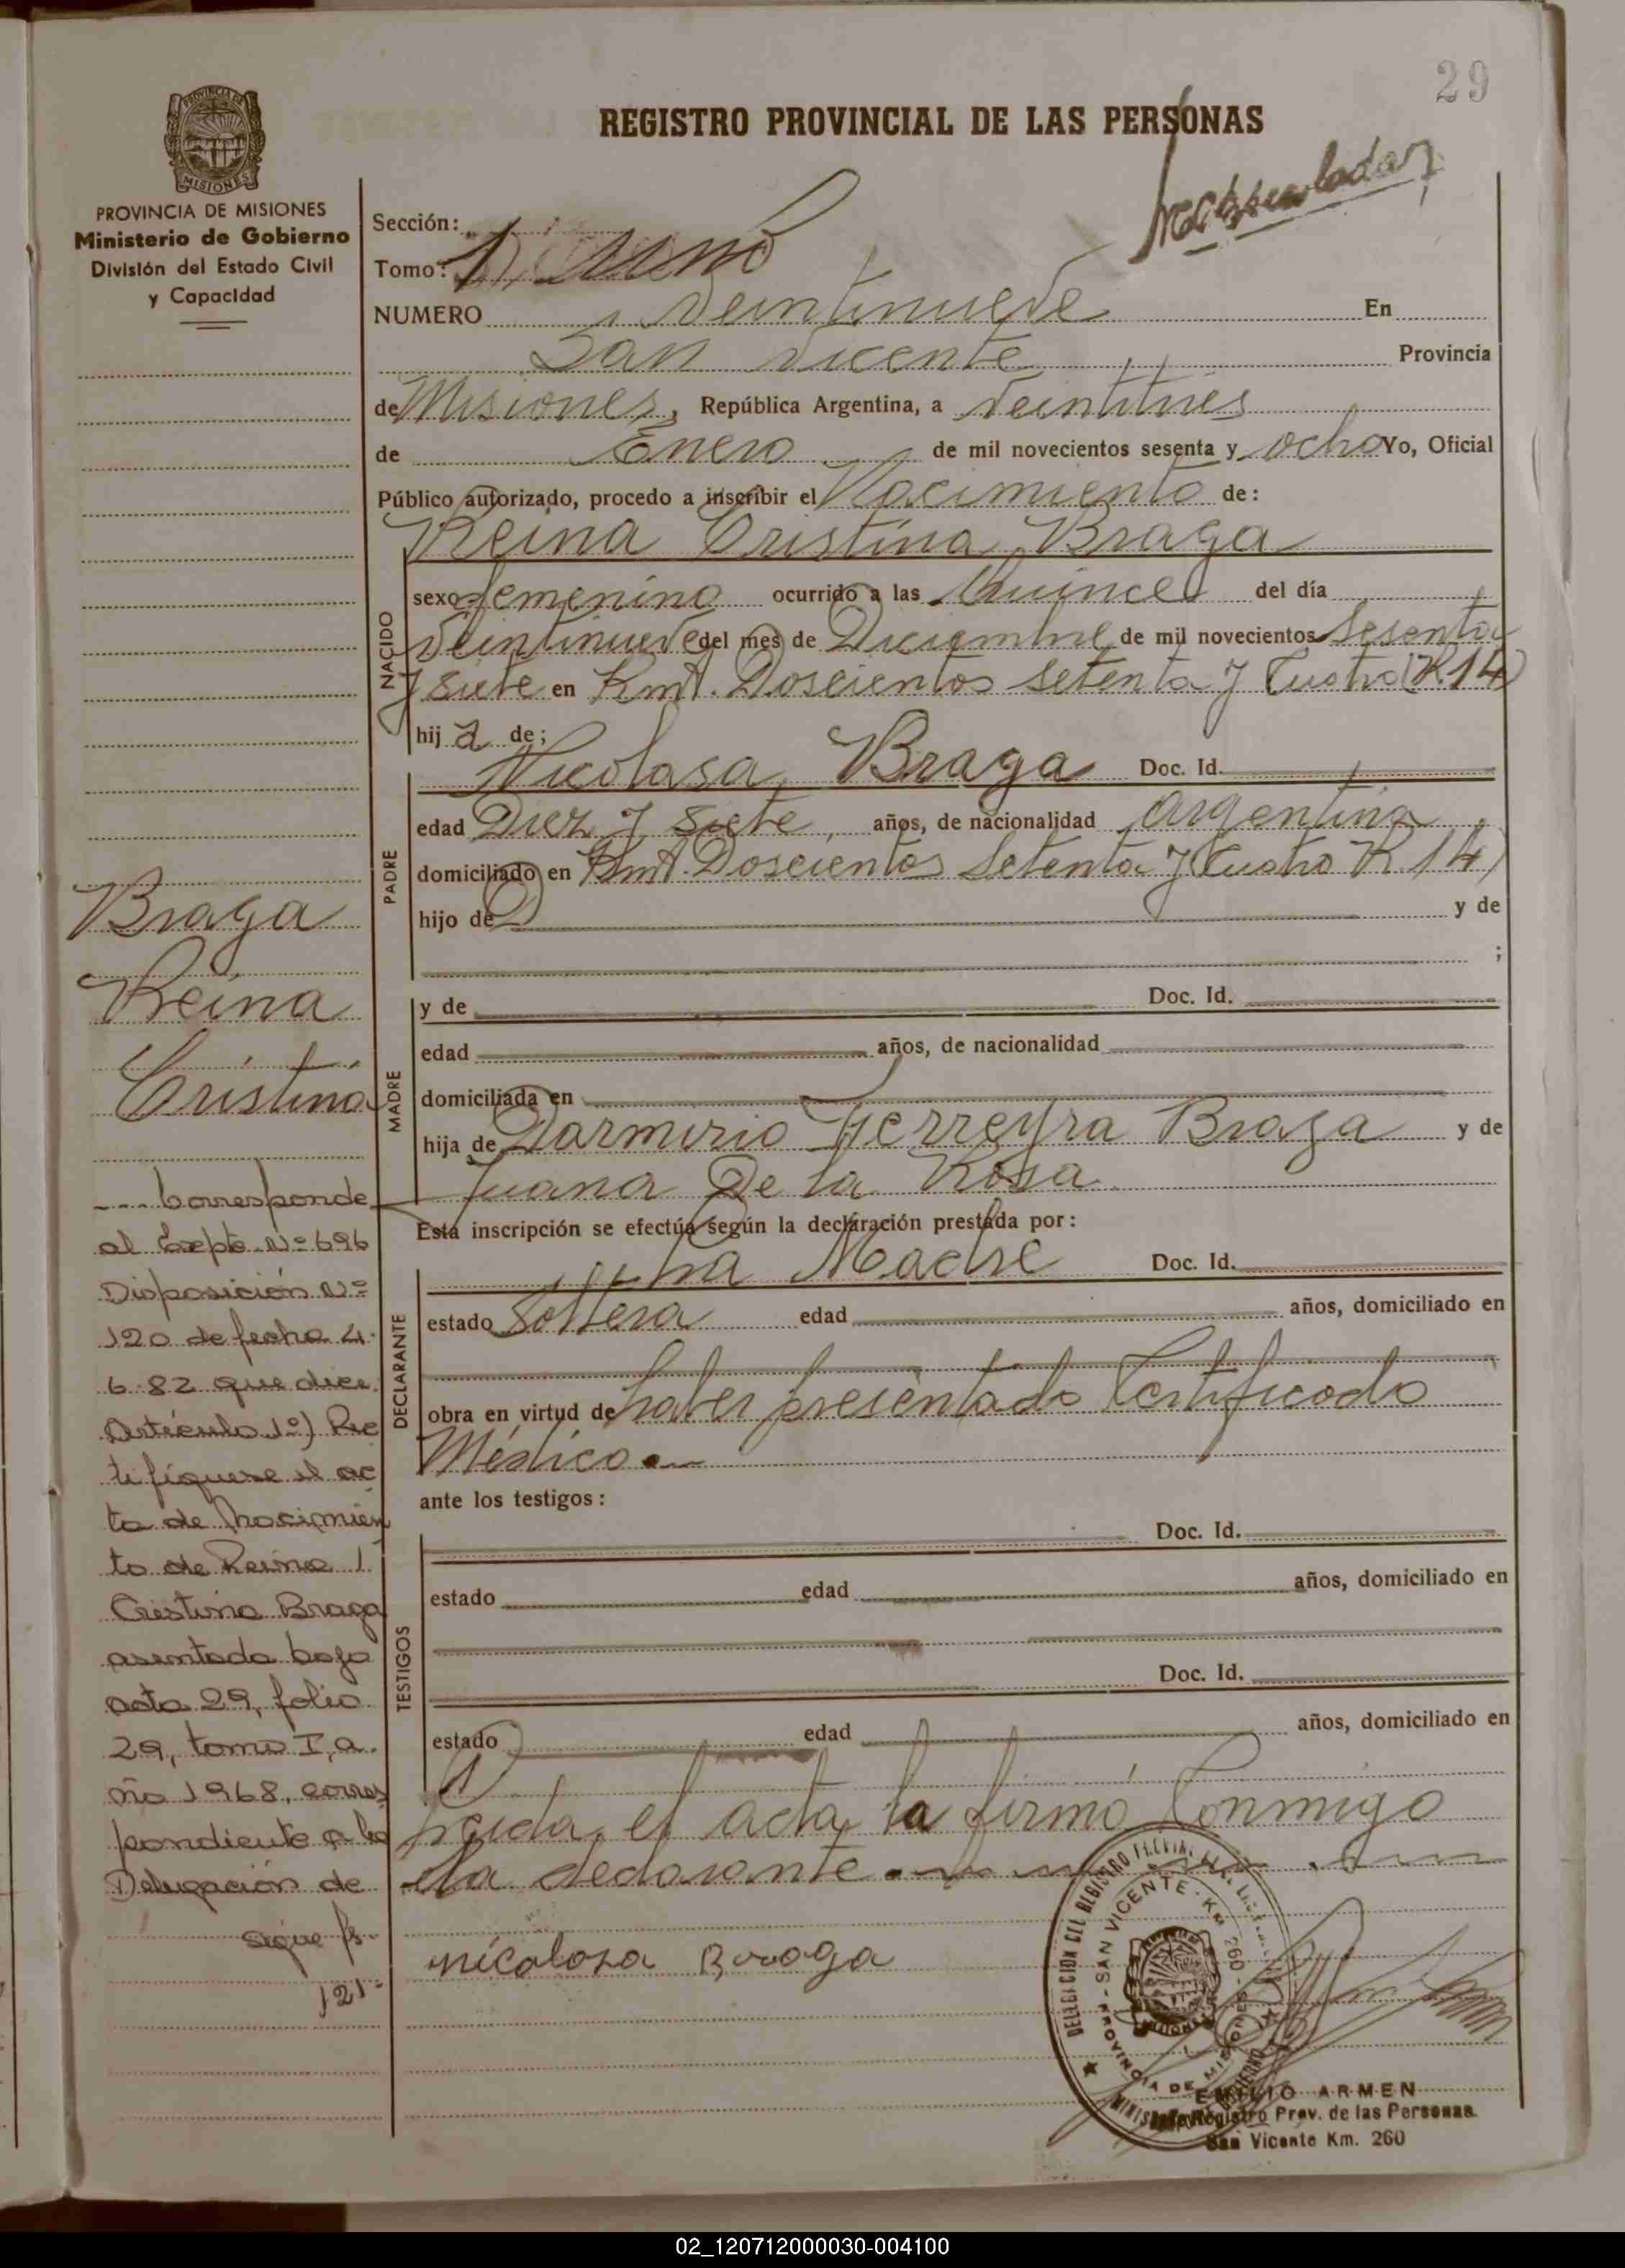 29
REGISTRO PROVINCIAL DE LAS PERSONAS
MISIONES
PROVINCIA DE MISIONES
Ministerio de Gobierno
División del Estado Civil
y Capacidad
Sección:
Tomo: 1, uno
NUMERO Veintinueve En
San Vicente Provincia
de Misiones, República Argentina, a Veintitrés
de Enero de mil novecientos sesenta y ocho Yo, Oficial
Público autorizado, procedo a inscribir el Nacimiento de:
Reina Cristina Braga
NACIDO
sexo femenino ocurrido a las Quince del día
Veintinueve del mes de Diciembre de mil novecientos Sesenta
y Siete en Kmt. Doscientos Setenta y Cuatro (R.14)
hij a de;
PADRE
Nicolasa Braga Doc. Id.
edad Diez y Siete, años, de nacionalidad Argentina
domiciliado en Kmt. Doscientos Setenta y Cuatro R.14)
hijo de y de
;
MADRE
y de Doc. Id.
edad años, de nacionalidad
domiciliada en
hija de Darmirio Ferreyra Braga y de
Juana De la Rosa
Esta inscripción se efectúa según la declaración prestada por:
DECLARANTE
La Madre Doc. Id.
estado Soltera edad años, domiciliado en
obra en virtud de haber presentado Certificado
Médico
ante los testigos:
TESTIGOS
Doc. Id.
estado edad años, domiciliado en
Doc. Id.
estado edad años, domiciliado en
Leida el acta la firmó Conmigo
la declarante.
nicolasa Braga
Braga
Reina
Cristina
--- Corresponde
al Expte Nº 696
Disposición Nº
120 de fecha 4.
6.82 que dice:
Artículo 1º) Rec
tifíquese el ac
ta de Nacimien
to de Reina
Cristina Braga
asentada bajo
acta 29, folio
29, tomo I, a.
ño 1968, corres
pondiente a la
Delegación de
sigue fs.
121-
SAN VICENTE - KM 260 -
PROVINCIA DE MISIONES
EMILIO ARMEN
Registro Prov. de las Personas
San Vicente Km. 260
02_120712000030-004100